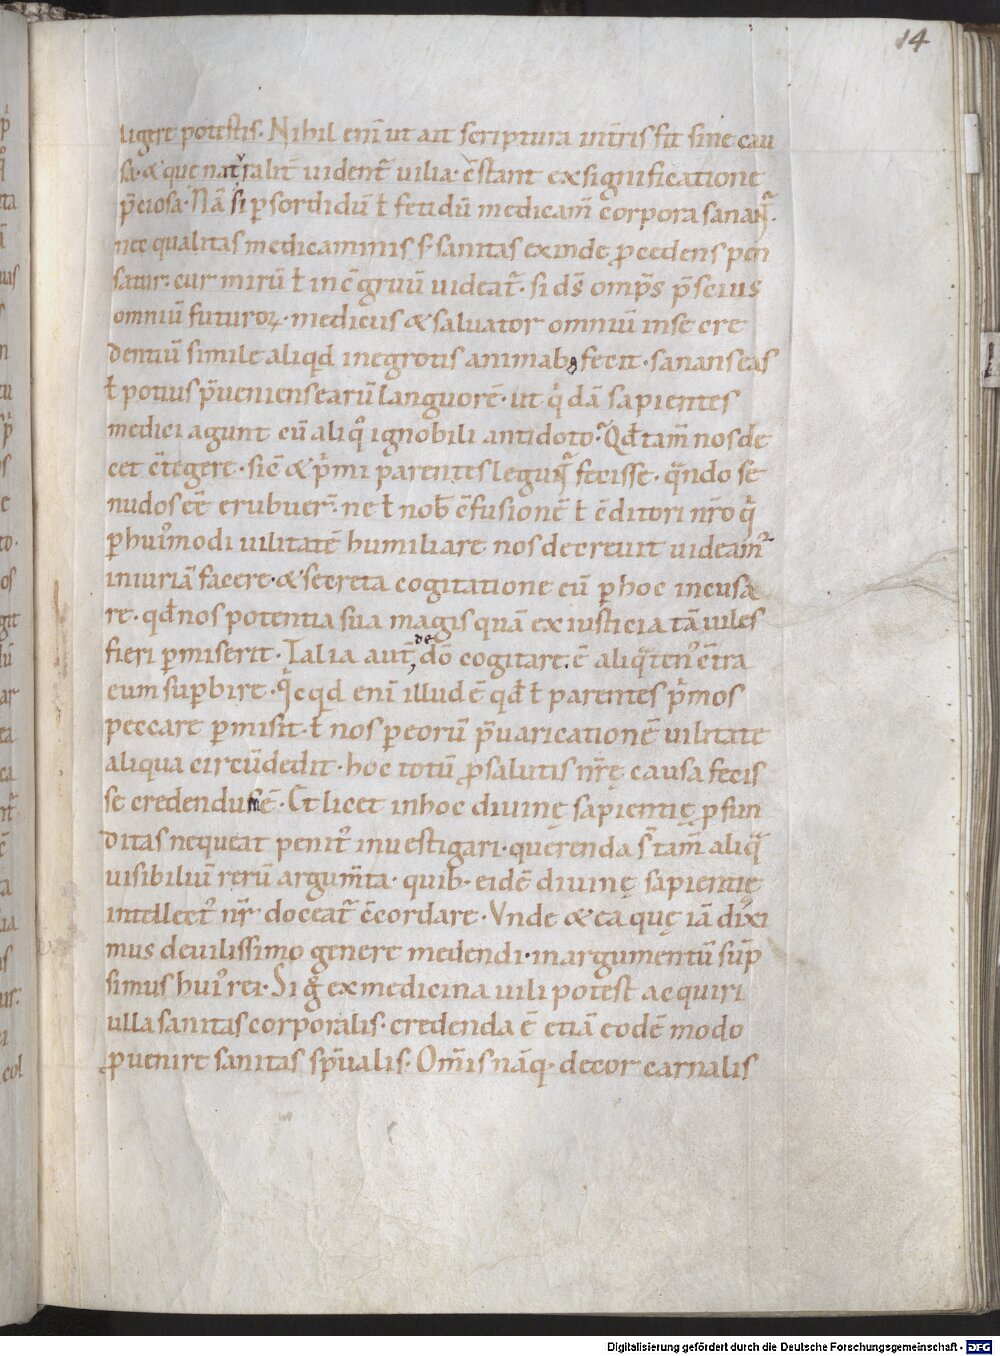 14
ligere potestis. Nihil eni̅ ut ait scriptura int̅ris fit sine cau
sa. & que nat᷑ralit̅ uident᷑ uilia. c̅stant ex significatione
p̅ciosa. Na̅ si p̱ sordidu̅ ł fetidu̅ medicam̅ corpora sanant᷑.
nec qualitas medicaminis s; sanitas exinde ꝓcedens pen
satur. cur miru̅ ł inc̅gruu̅ uideat᷑. si ds̅ omp̅s p̅scius
omniu̅ futuroꝝ. medicus & saluator omniu̅ in se cre
dentiu̅ simile aliqd̅ in egrotis animab; fecit. sanans eas
ł potius p̅ueniens earu̅ languore̅. ut qͥda̅ sapientes
medici agunt cu̅ aliqͦ ignobili antidoto. Qđ tam̅ nos de
cet c̅tegere. sic̅ & pͥmi parentes legunt᷑ fecisse. qͣndo se
nudos e̅e̅ erubuer̅. ne ł nob̅ c̅fusione̅ ł c̅ditori nr̅o qͥ
p̱ huiͦmodi uilitate̅ humiliare nos decreuit uideam᷑
iniuria̅ facere. & secreta cogitatione eu̅ p̱ hoc incusa
re. qđ nos potentia sua magis qua̅ ex iusticia ta̅ uiles
fieri p̱miserit. Talia aut̅ de
do̅ cogitare. e̅ aliqͣten᷒ c̅tra
eum sup̱bire. Qͥcqd eni̅ illud e̅ qđ ł parentes pͥmos
peccare p̱misit. ł nos p̱ eoru̅ p̅uaricatione̅ uilitate
aliqua circu̅dedit. hoc totu̅ ꝓ salutis nr̅ę causa fecis
se credendum e̅. Et licet in hoc diuinę sapientię ꝓfun
ditas nequeat penit᷒ inuestigari. querenda s̅ tam̅ aliqͣ
uisibiliu̅ reru̅ argum̅ta. quib. eide̅ diuinę sapientię
intellect᷒ nr̅ doceat᷑ c̅cordare. Vnde & ea quę ia̅ dixi
mus de uilissimo genere medendi. in argumentu̅ su̅p
simus hui᷒ rei. Si gͦ ex medicina uili potest acquiri
ulla sanitas corporalis. credenda e̅ etia̅ eode̅ modo
ꝓuenire sanitas sp̅ualis. Om̅is na̅q. decor carnalis
Digitalisierung gefördert durch die Deutsche Forschungsgemeinschaft - DFG